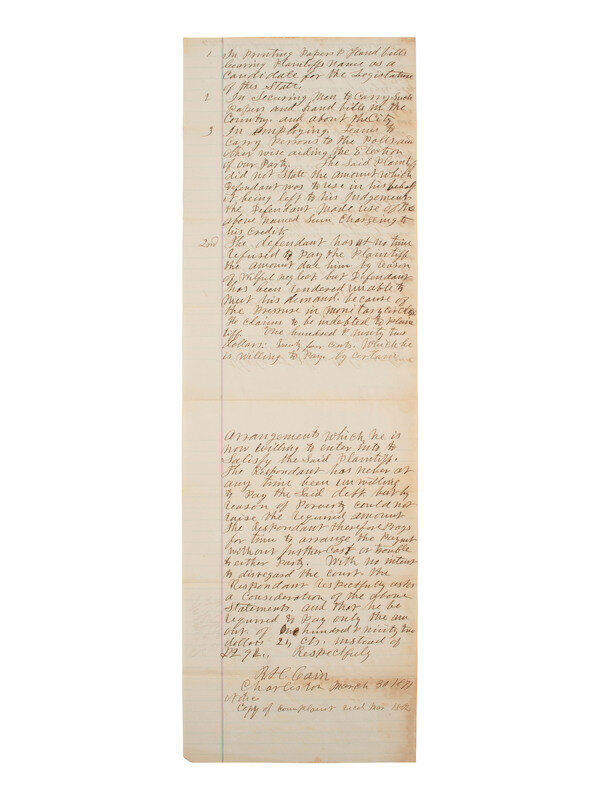 1 In Printing Papers & Hand bills
bearing Plaintiffs Name as a
Candidate for the Legislature
of this State.
2 In Securing Men to Carry Such
Papers and hand bills in the
Country. and about the City
3 In employing teams to
Carry Persons to the Polls and
other wise aiding the Election
of our Party. The Said Plaintiff
did not State the amount which
Defendant was to use in his behalf
it being left to his Judgement
the Defendant made use of the
above named Sum Chargeing to
his Credit
2nd The defendant has at no time
refused to Pay the Plaintiff
the amount due him by reason
of Wilful neglect but Defendant
has been rendered unable to
meet his demand because of
the Pressure in monetary circles
He claims to be indebted to Plain
tiff. One hundred & ninty two
dollars: twenty four cents. Which he
is willing to Pay. by certain
Arrangements which he is
now willing to enter into to
Satisfy the Said Plaintiff.
The Respondant has never at
any time been unwilling
to Pay the Said debt but by
reason of Poverty could not
raise the required amount
The Respondant therefore Prays
for time to arrange the Payment
without further Cost or trouble
to either Party. With no intent
to disregard the court the
Respondant Respectfully asks
a Consideration of the above
Statements. and that he be
required to Pay only the am
ount of One hundred & ninty two
dollars 24 cts. instead of
Respectfully
R.H. Cain
Charleston March 30
Copy of complaint recd Mar